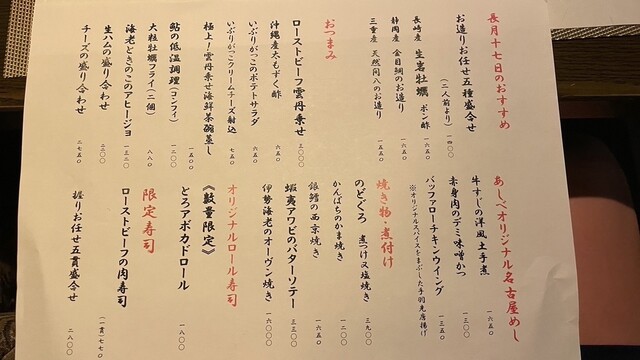 長月十七日のおすすめ
お造りお任せ五種盛合せ
(二人前より) 一四〇〇
長崎産 生岩牡蠣 ポン酢
六五〇
静岡産 金目鯛のお造り
一六五〇
三重産 天然間八のお造り
一五五〇
おつまみ
ローストビーフ雲丹乗せ
三〇〇〇
沖縄産太もずく酢
六五〇
いぶりがっこのポテトサラダ
六五〇
いぶりがっこクリームチーズ射込
七五〇
極上!雲丹乗せ海鮮茶碗蒸し
一五〇
鮎の低温調理(コンフィ)
一二〇〇
大粒牡蠣フライ(二個)
八八〇
海老ときのこのアヒージョ
一三二〇
生ハムの盛り合わせ
二二〇〇
チーズの盛り合わせ
二七五〇
あしべオリジナル名古屋めし
牛すじの洋風土手煮
一一〇〇
赤身肉のデミ味噌かつ
一三〇〇
バッファローチキンウイング
一三五〇
※オリジナルスパイスをまぶした手羽先唐揚げ
焼き物・煮付け
のどぐろ 煮つけ又塩焼き
三九〇〇
かんぱちのかま焼き
一二〇〇
銀鱈の西京焼き
一六五〇
蝦夷アワビのバターソテー
三三〇〇
伊勢海老のオーヴン焼き
一六〇〇〇
オリジナルロール寿司
《数量限定》
とろアボカドロール
一八〇〇
限定寿司
ローストビーフの肉寿司
(一貫)七七〇
握りお任せ五貫盛合せ
二八〇〇